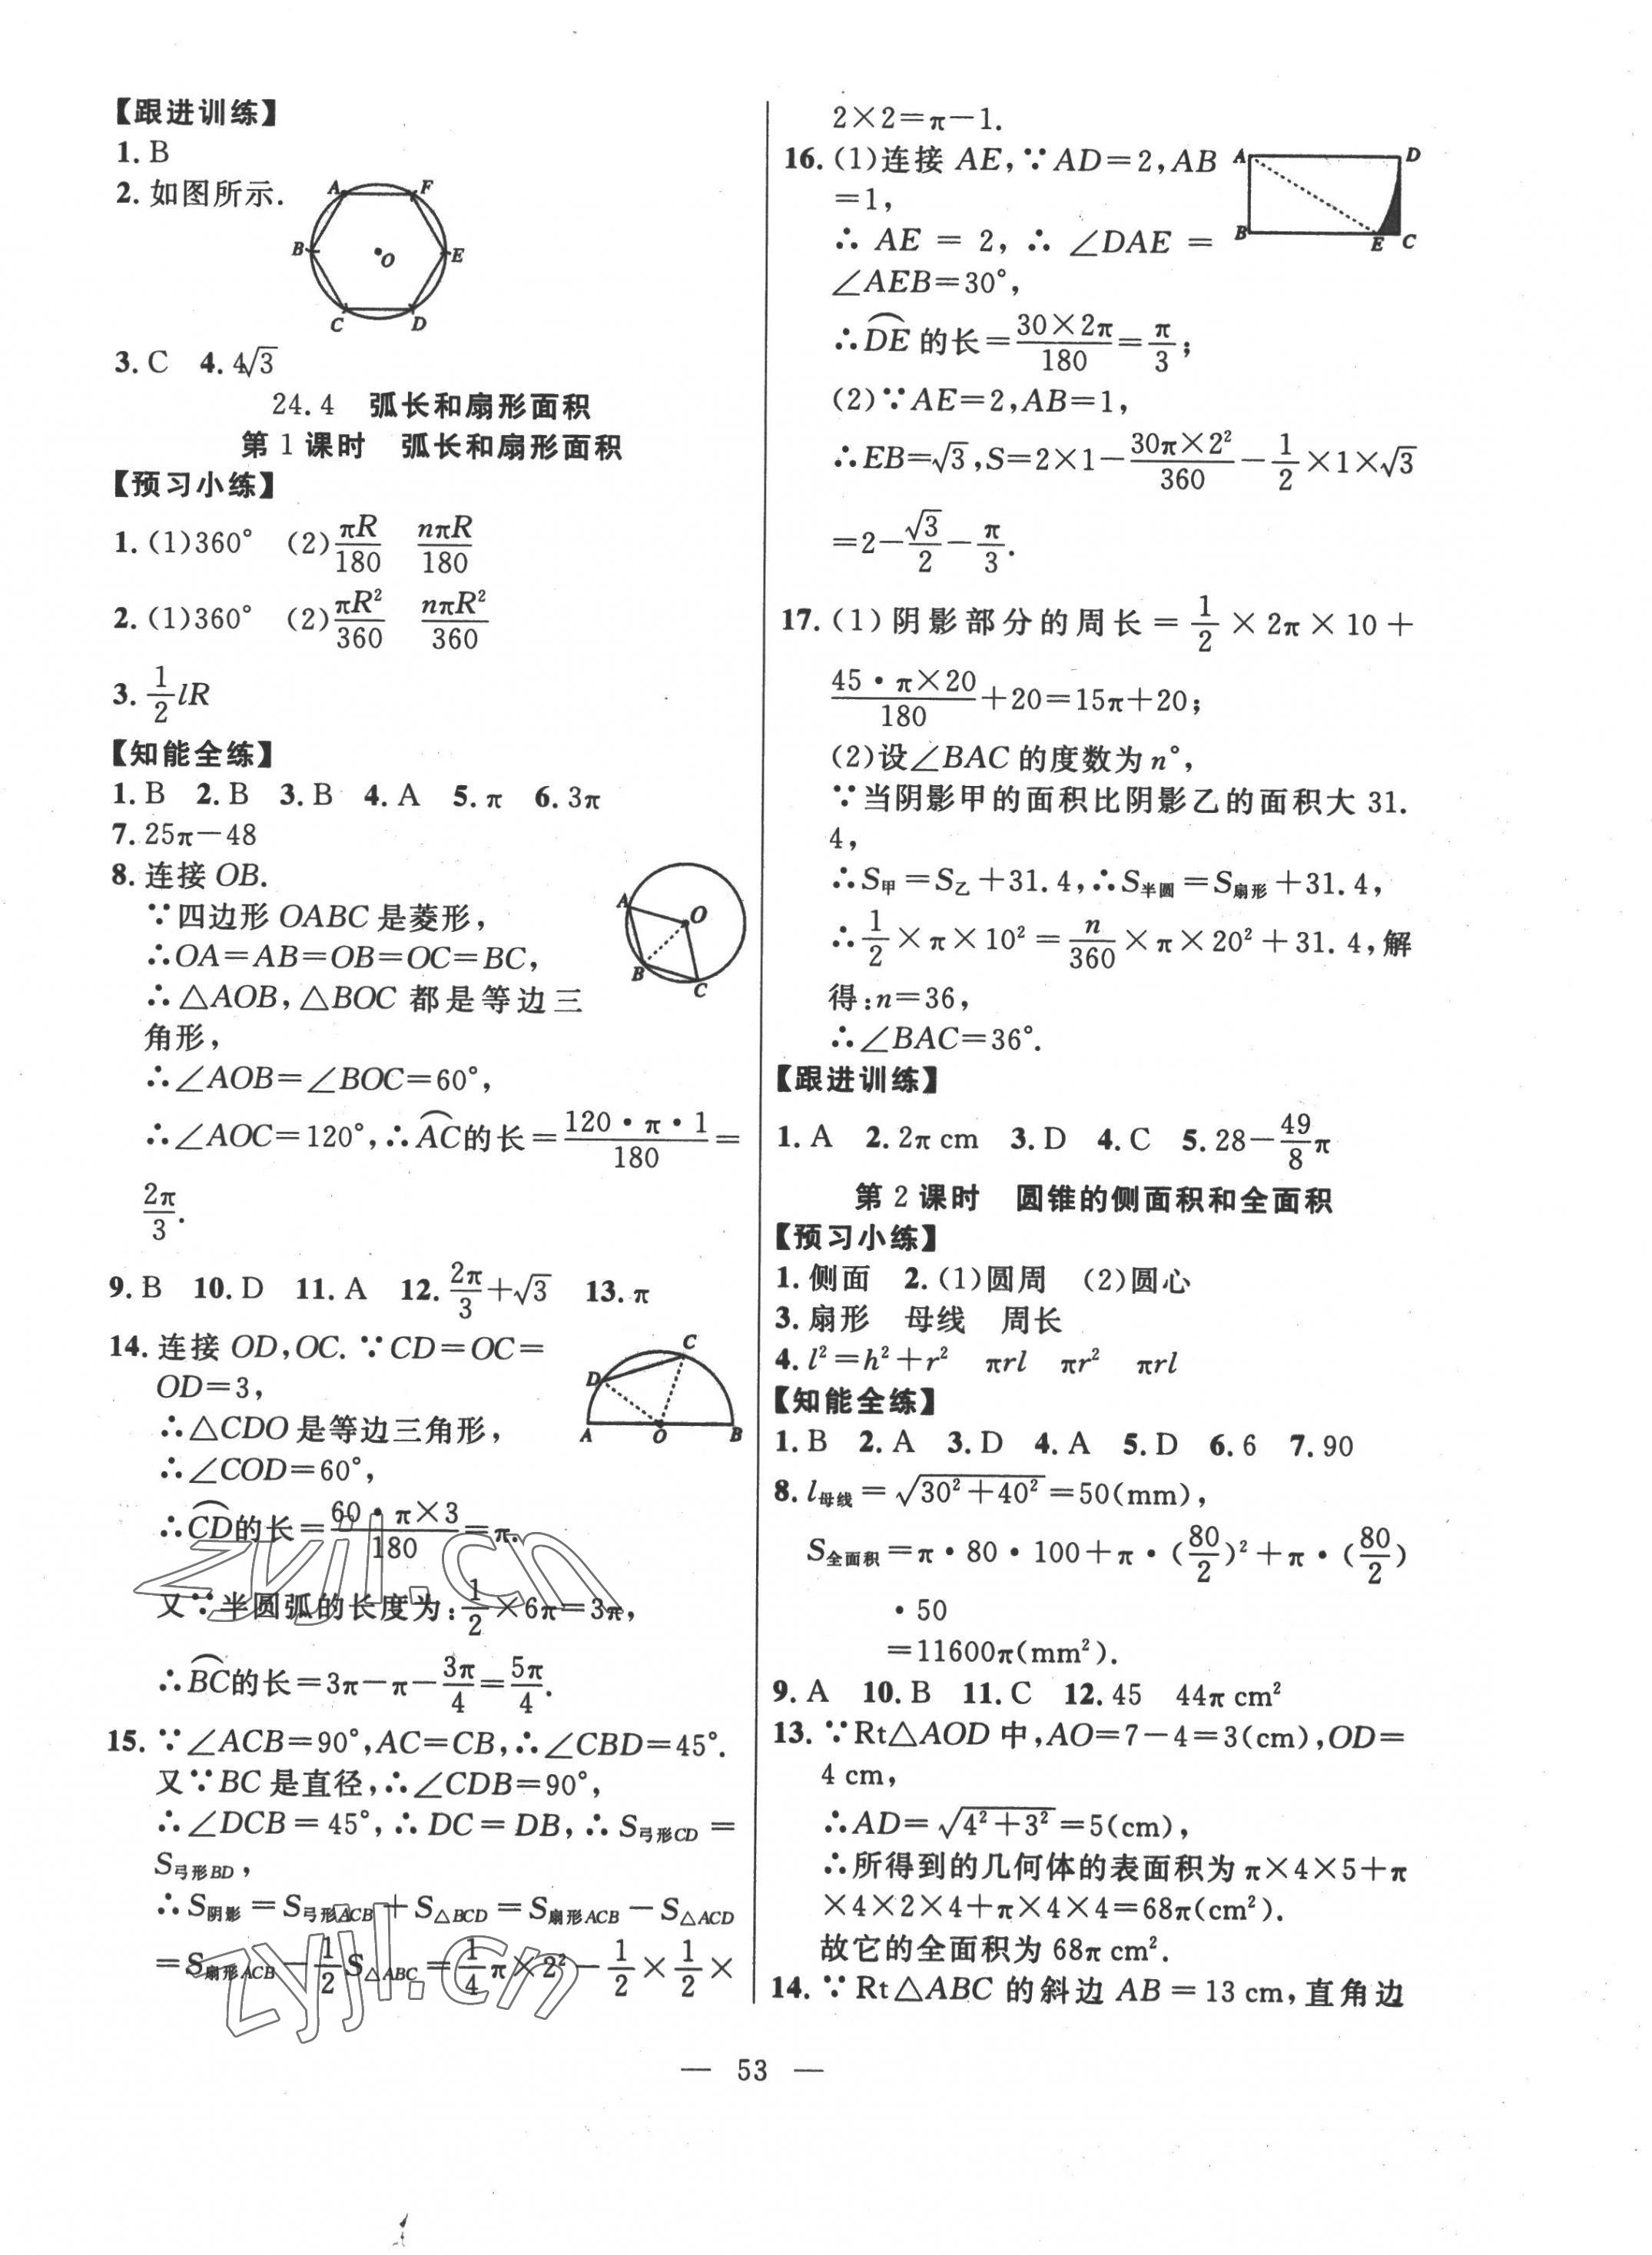 【跟进训练】
1. B
2. 如图所示.
A F
B E
O
C D
3. C 4. 4√3
24.4 弧长和扇形面积
第1课时 弧长和扇形面积
【预习小练】
1. (1)360° (2)πR/180 nπR/180
2. (1)360° (2)πR²/360 nπR²/360
3. 1/2 lR
【知能全练】
1. B 2. B 3. B 4. A 5. π 6. 3π
7. 25π−48
8. 连接 OB.
∵四边形 OABC 是菱形,
∴OA=AB=OB=OC=BC,
∴△AOB,△BOC 都是等边三
角形,
∴∠AOB=∠BOC=60°,
∴∠AOC=120°,∴⌒AC的长=120·π·1/180=
2π/3.
A O
B C
9. B 10. D 11. A 12. 2π/3+√3 13. π
14. 连接 OD,OC. ∵CD=OC=
OD=3,
∴△CDO 是等边三角形,
∴∠COD=60°,
∴⌒CD的长=60·π×3/180=π.
又∵半圆弧的长度为:1/2×6π=3π,
∴⌒BC的长=3π−π−3π/4=5π/4.
C
D
A O B
15. ∵∠ACB=90°,AC=CB,∴∠CBD=45°.
又∵BC 是直径,∴∠CDB=90°,
∴∠DCB=45°,∴DC=DB,∴S弓形CD=
S弓形BD,
∴S阴影=S弓形ACB+S△BCD=S扇形ACB−S△ACD
=S扇形ACB−1/2 S△ABC=1/4 π×2²−1/2×1/2×
2×2=π−1.
16. (1)连接 AE,∵AD=2,AB
=1,
∴AE=2,∴∠DAE=
∠AEB=30°,
∴⌒DE的长=30×2π/180=π/3;
(2)∵AE=2,AB=1,
∴EB=√3,S=2×1−30π×2²/360−1/2×1×√3
=2−√3/2−π/3.
A D
B E C
17. (1)阴影部分的周长=1/2×2π×10+
45·π×20/180+20=15π+20;
(2)设∠BAC 的度数为 n°,
∵当阴影甲的面积比阴影乙的面积大 31.
4,
∴S甲=S乙+31.4,∴S半圆=S扇形+31.4,
∴1/2×π×10²=n/360×π×20²+31.4,解
得:n=36,
∴∠BAC=36°.
【跟进训练】
1. A 2. 2π cm 3. D 4. C 5. 28−49/8 π
第2课时 圆锥的侧面积和全面积
【预习小练】
1. 侧面 2. (1)圆周 (2)圆心
3. 扇形 母线 周长
4. l²=h²+r² πrl πr² πrl
【知能全练】
1. B 2. A 3. D 4. A 5. D 6. 6 7. 90
8. l母线=√(30²+40²)=50(mm),
S全面积=π·80·100+π·(80/2)²+π·(80/2)
·50
=11600π(mm²).
9. A 10. B 11. C 12. 45 44π cm²
13. ∵Rt△AOD 中,AO=7−4=3(cm),OD=
4 cm,
∴AD=√(4²+3²)=5(cm),
∴所得到的几何体的表面积为 π×4×5+π
×4×2×4+π×4×4=68π(cm²).
故它的全面积为 68π cm².
14. ∵Rt△ABC 的斜边 AB=13 cm,直角边
— 53 —
zyjl.cn
zyjl.cn